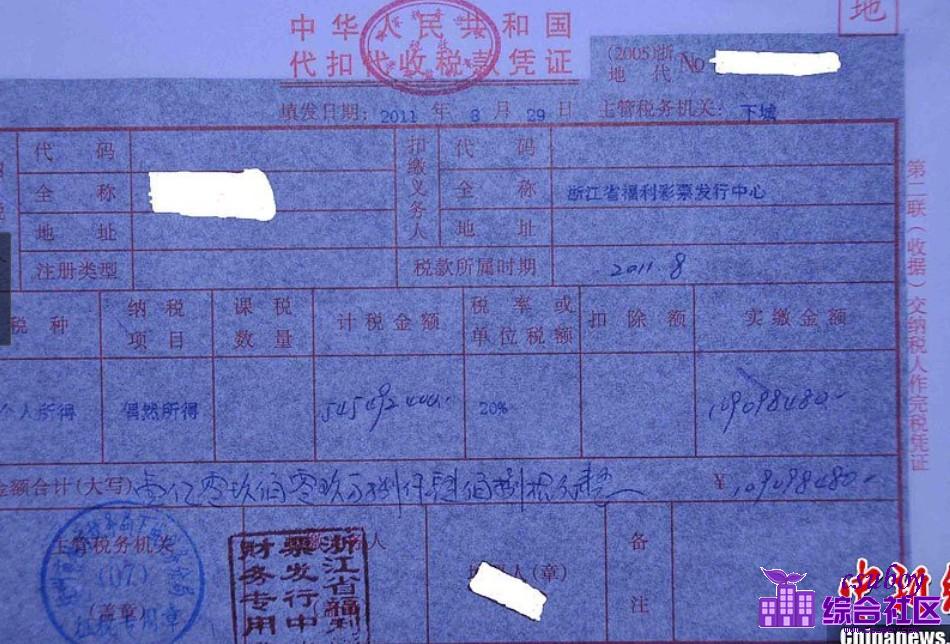 地
中华人民共和国
代扣代收税款凭证
(2005)浙
地 代 No
填发日期: 2011 年 8 月 29 日 主管税务机关: 下城
代 码
全 称
地 址
注册类型
扣缴义务人
代 码
全 称 浙江省福利彩票发行中心
地 址
税款所属时期 2011.8
税 种
纳税项目
课税数量
计税金额
税率或单位税额
扣除额
实缴金额
个人所得
偶然所得
545492400.-
20%
109098480.-
金额合计(大写) 壹亿零玖佰零玖万捌仟肆佰捌拾元整
¥109098480.-
主管税务机关
(07)
(盖章)
征税专用章
浙江省福利
票发行中
财务专用
人
人(章)
备
注
第二联(收据)交纳税人作完税凭证
综合社区
Chinanews